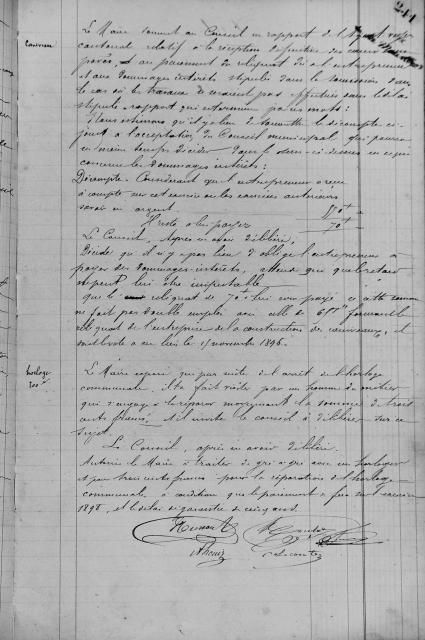 244
Caniveau
Le Maire soumet au Conseil un rapport de l'Agent voyer
cantonal relatif à la réception définitive des caniveaux
pavés, et au paiement du reliquat dû à l'entrepreneur
et aux dommages intérêts stipulés dans la soumission dans
le cas où les travaux ne seraient pas effectués dans le délai
stipulé, rapport qui se termine par ces mots :
Nous estimons qu'il y a lieu de soumettre le décompte ci-
joint à l'acceptation du Conseil municipal qui pourra
en même temps décider dans le sens ci-dessus en ce qui
concerne les dommages intérêts :
Décompte. Considérant que l'entrepreneur a reçu
à compte sur cet exercice ou les exercices antérieurs
savoir en argent
870 f
Il reste à lui payer 70 f
Le Conseil, Après en avoir délibéré,
Décide qu'il n'y a pas lieu d'obliger l'entrepreneur à
payer des dommages-intérêts, attendu que le retard
ne peut lui être imputable
que le reliquat de 70 f lui sera payé, ce
ne fait pas double emploi avec celle de
reliquat de l'entreprise de la construction des caniveaux, et
novembre 1896.
horloge
300 f
Le Maire expose que par suite de l'arrêt de l'horloge
communale, il l'a fait visiter par un homme du métier
qui s'engage à la réparer moyennant la somme de trois
cents francs, et il invite le conseil à délibérer sur ce
sujet.
Le Conseil, après en avoir délibéré,
Autorise le Maire à traiter de gré à gré avec un horloger
et pour trois cents francs pour la réparation de l'horloge
communale, à condition que le paiement se fera sur l'exercice
1898, et le délai de garantie de cinq ans.
Lecomte